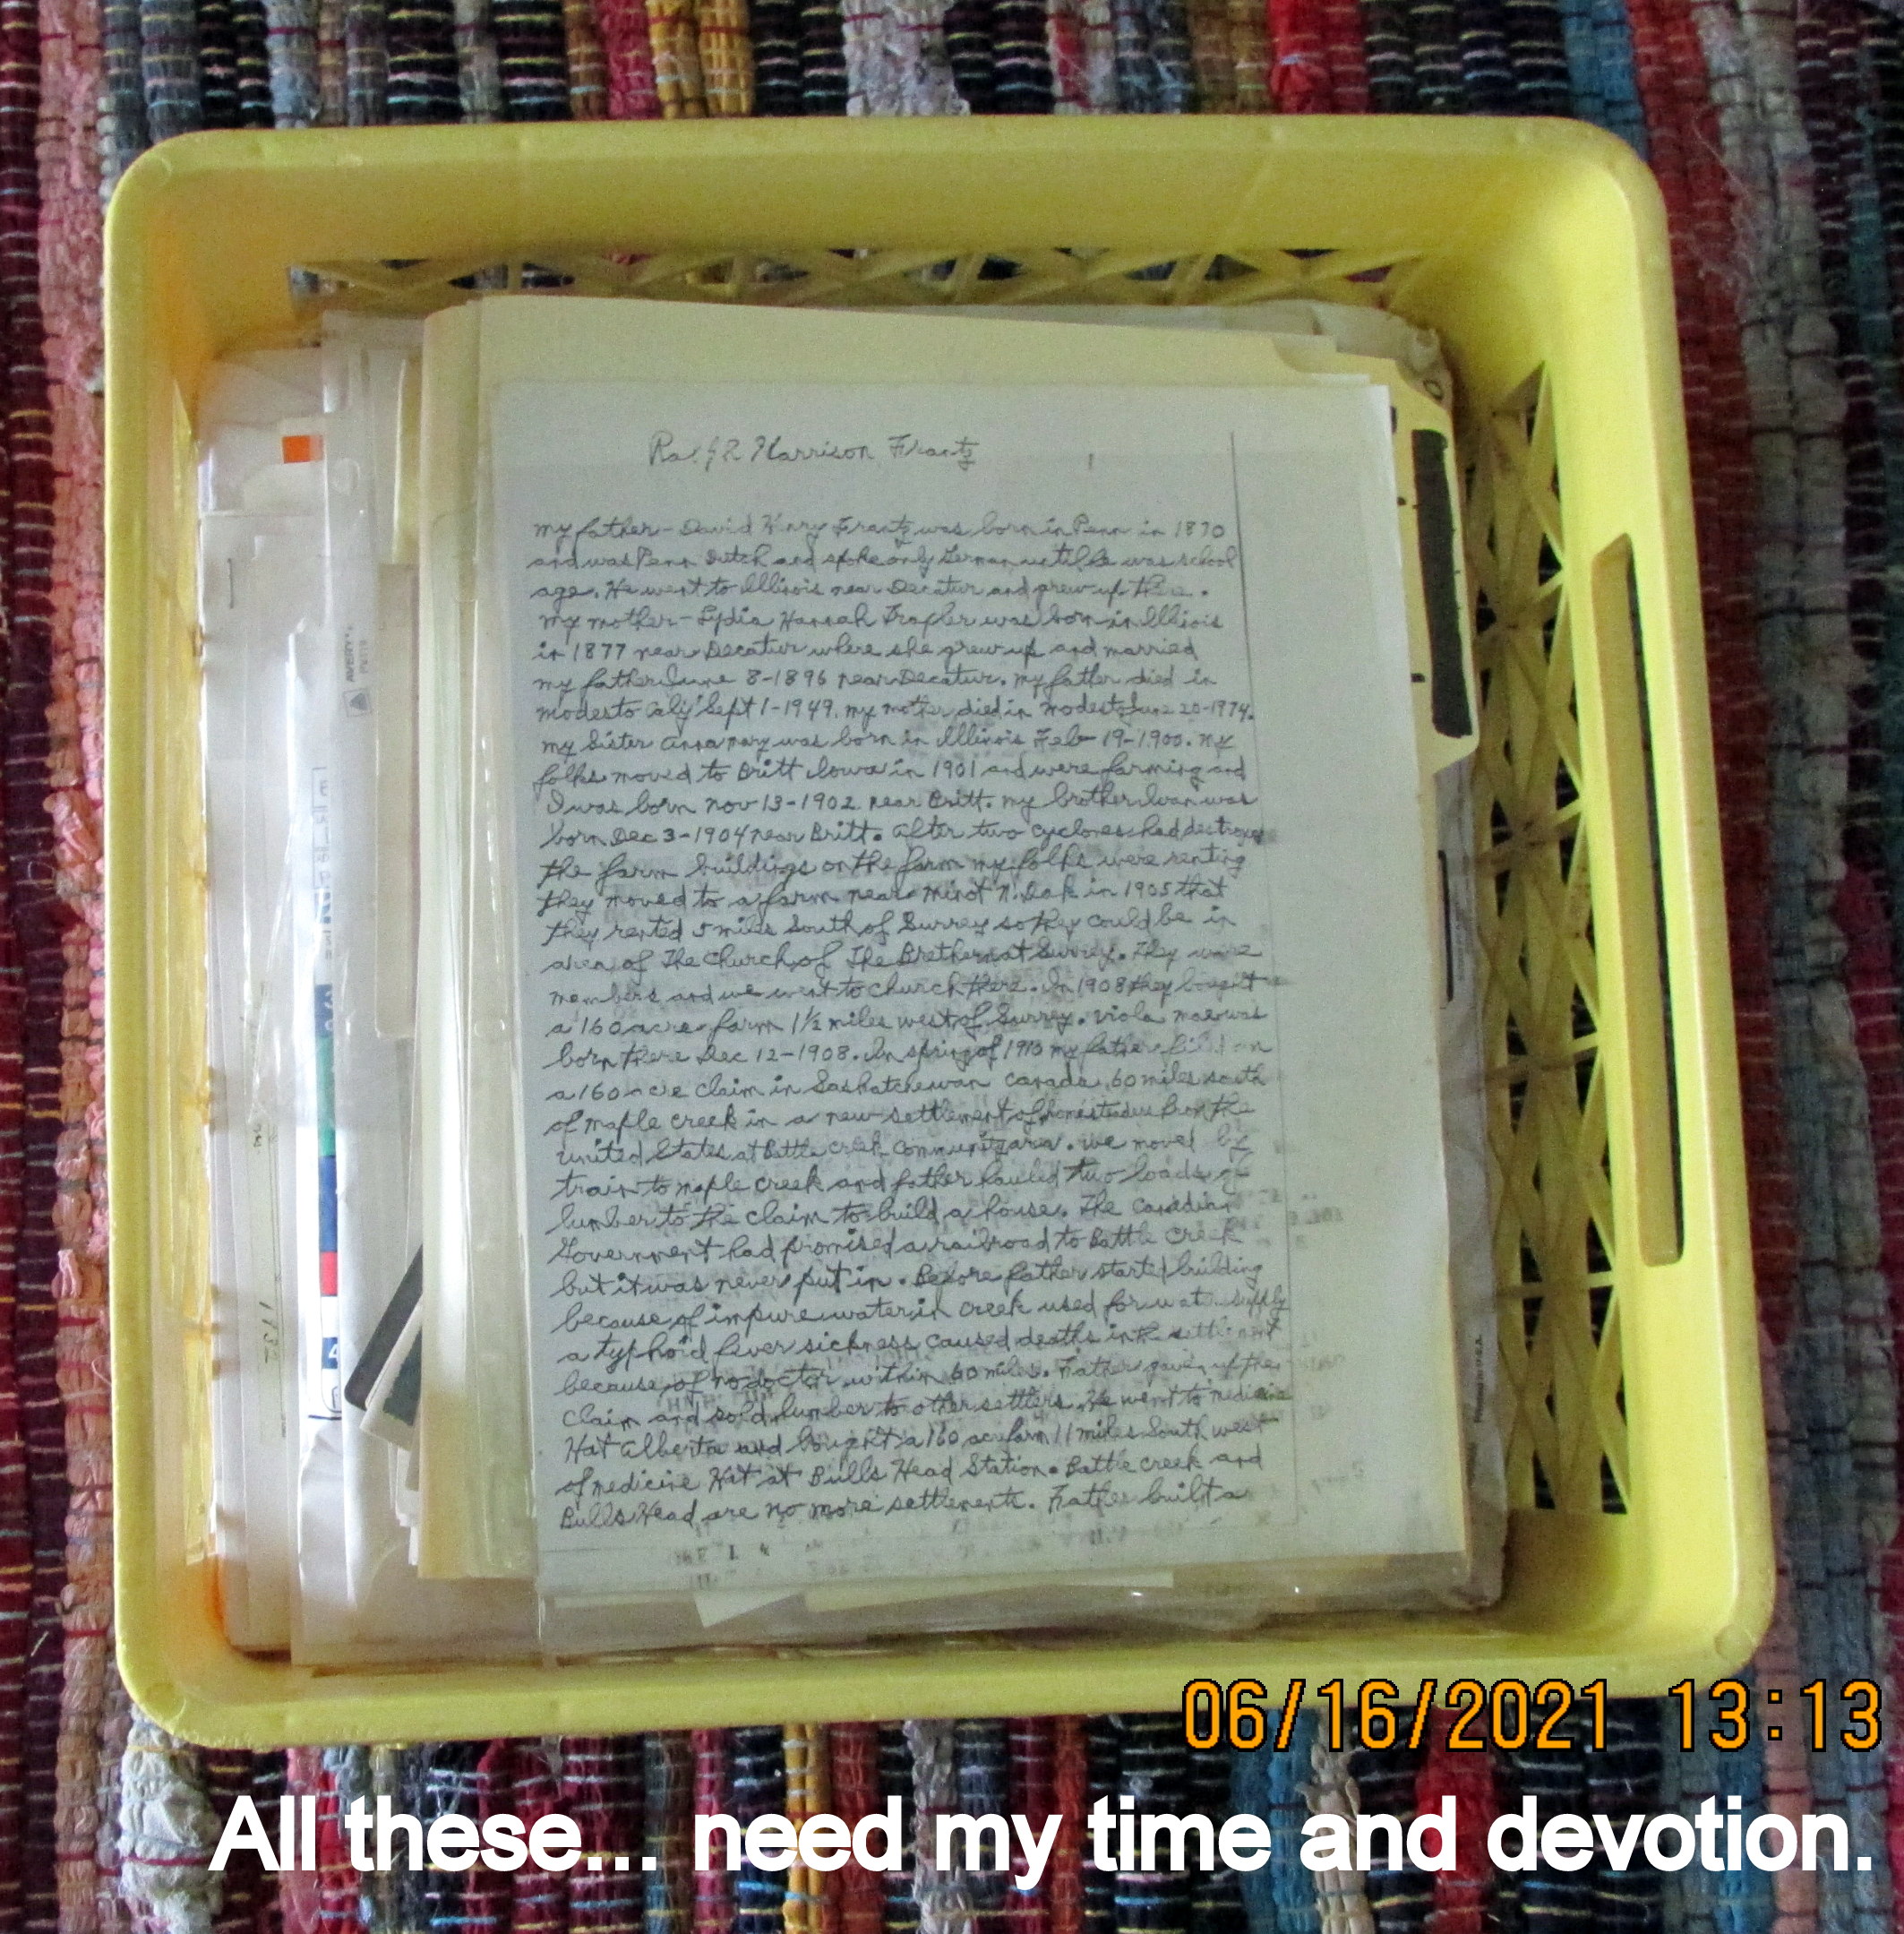 Ralph Harrison Frantz
1
my father - David Henry Frantz was born in Penn in 1870
and was Penn Dutch and spoke only German until he was school
age. He went to Illinois near Decatur and grew up there.
my mother - Lydia Hannah was born in Illinois
in 1877 near Decatur where she grew up and married
my father June 8-1896 near Decatur. my father died in
modesto Calif Sept 1-1949. my mother died in modesto June 20-1974.
my Sister Anna mary was born in Illinois Feb 19-1900. my
folks moved to Britt Iowa in 1901 and were farming and
I was born nov 13-1902 near Britt. my brother Ivan was
born Dec 3-1904 near Britt. after two cyclones had destroyed
the farm buildings on the farm my folks were renting
they moved to a farm near minot N. Dak in 1905 that
they rented 5 miles South of Surrey so they could be in
area of The Church of The Brethern at Surrey. They were
members and we went to church there. In 1908 they bought
a 160 acre farm 1½ miles west of Surrey. Viola mae was
born there Dec 12-1908. In spring of 1910 my father filed on
a 160 acre claim in Saskatchewan Canada, 60 miles south
of maple creek in a new settlement of homesteaders from the
united States at Battle creek community area. we moved by
train to maple creek and father hauled two loads of
lumber to the claim to build a house. The Canadian
Government had promised a railroad to Battle creek
but it was never put in. Before father started building
because of impure water in creek used for water supply
a typhoid fever sickness caused deaths in the settlement
because of no doctor within 60 miles. Father gave up the
claim and sold lumber to other settlers. He went to medicine
Hat Alberta and bought a 160 acre farm 11 miles South west
of medicine Hat at Bulls Head Station. Battle creek and
Bulls Head are no more settlements. Father built a
AVERY
06/16/2021 13:13
All these... need my time and devotion.